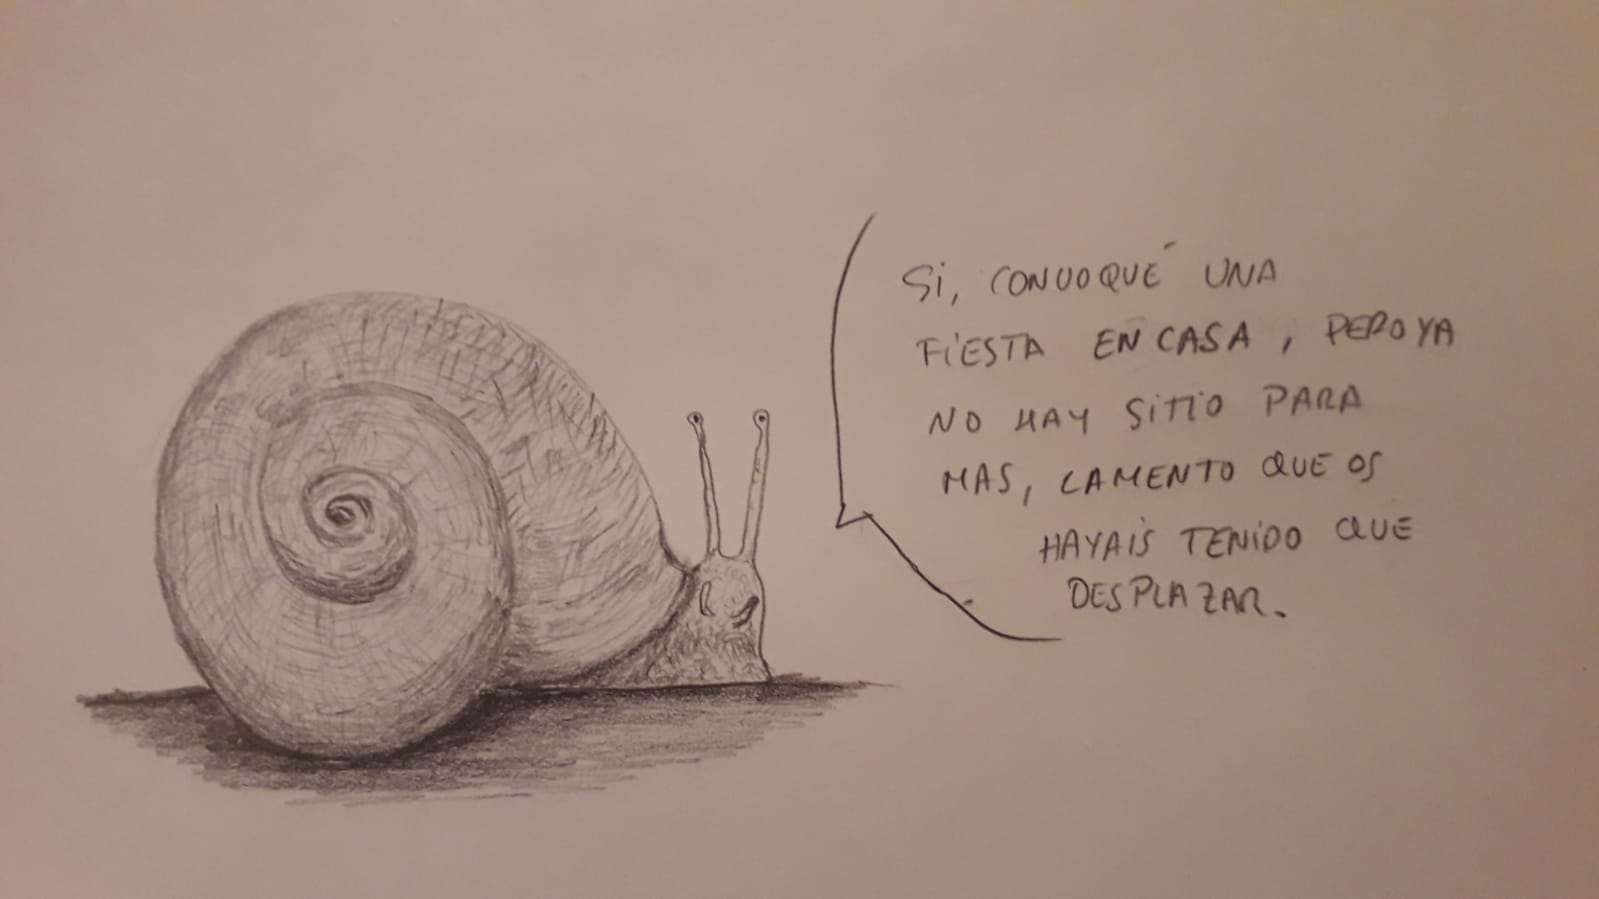 Si, CONVOQUÉ UNA
FIESTA EN CASA, PERO YA
NO HAY SITIO PARA
MAS, LAMENTO QUE OS
HAYAIS TENIDO QUE
DESPLAZAR.